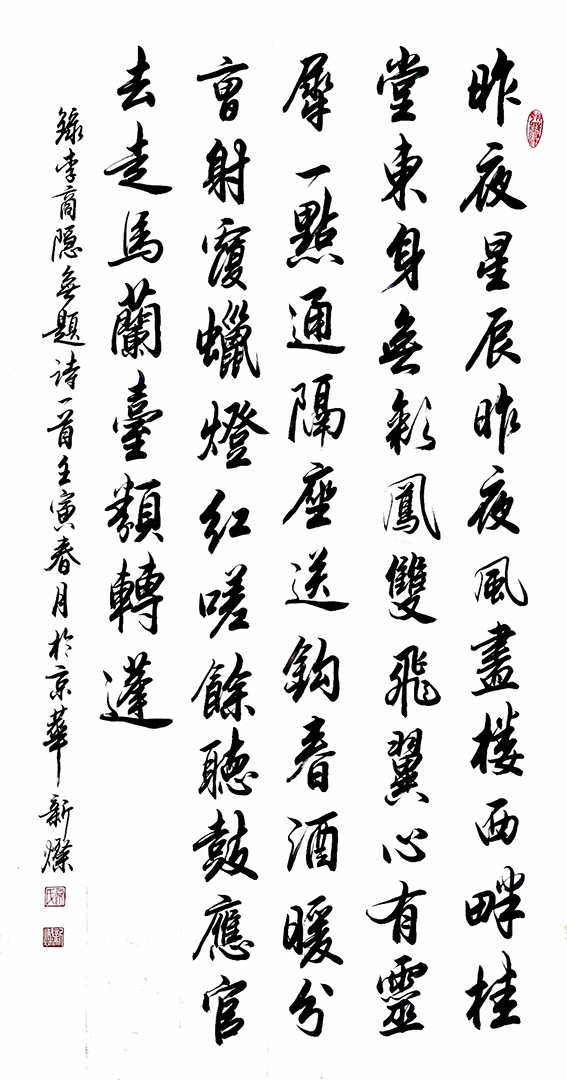 昨夜星辰昨夜風畫楼西畔桂
堂東身無彩鳳雙飛翼心有靈
犀一點通隔座送鈎春酒暖分
曹射覆蠟燈紅嗟餘聽鼓應官
去走馬蘭臺類轉蓬
錄李商隱無題詩一首壬寅春月於京華新燦